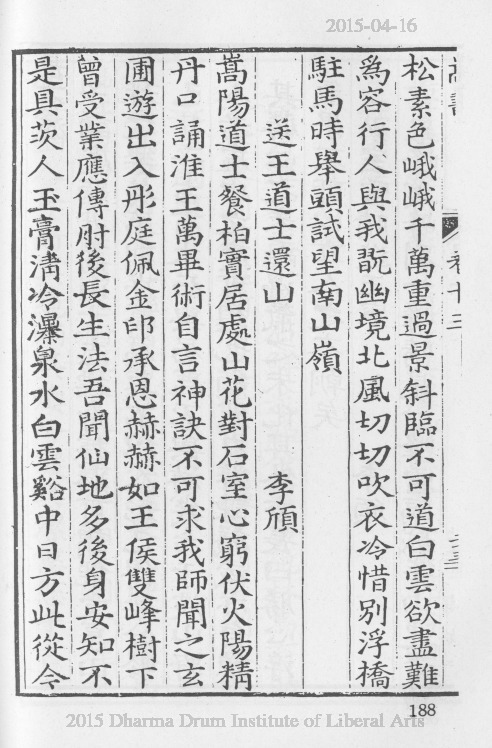 2015-04-16
卷十三
松素色峨峨千萬重過景斜臨不可道白雲欲盡難
爲容行人與我翫幽境北風切切吹衣冷惜別浮橋
駐馬時舉頭試望南山嶺
送王道士還山 李頎
嵩陽道士餐柏實居處山花對石室心窮伏火陽精
丹口誦淮王萬畢術自言神訣不可求我師聞之玄
圃遊出入彤庭佩金印承恩赫赫如王侯雙峰樹下
曾受業應傳肘後長生法吾聞仙地多後身安知不
是具茨人玉膏清冷瀑泉水白雲谿中日方此從今
188
2015 Dharma Drum Institute of Liberal Arts